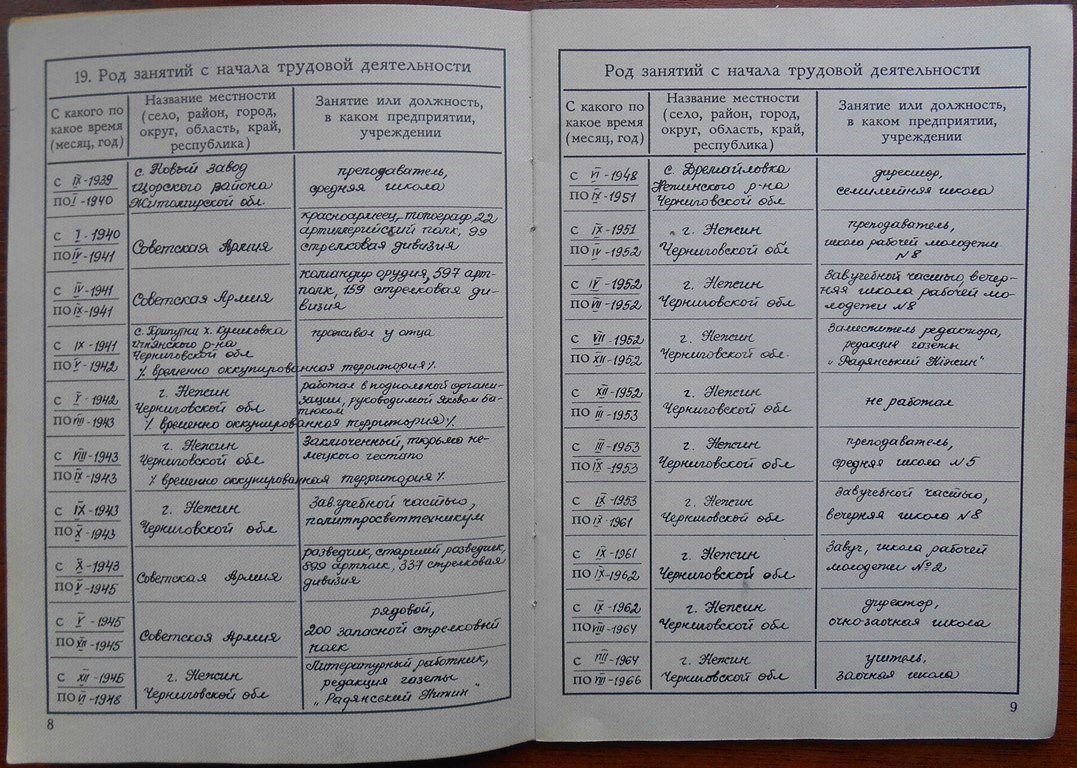 19. Род занятий с начала трудовой деятельности
С какого по какое время (месяц, год)
Название местности (село, район, город, округ, область, край, республика)
Занятие или должность, в каком предприятии, учреждении
С IX-1939
ПО I-1940
с. Новый завод
Щорского района
Житомирской обл.
преподаватель,
средняя школа
С I-1940
ПО IV-1941
Советская Армия
красноармеец, топограф, 22
артиллерийский полк, 99
стрелковая дивизия
С IV-1941
ПО IX-1941
Советская Армия
командир орудия, 597 арт-
полк, 159 стрелковая ди-
визия
С IX-1941
ПО V-1942
с. Припутни х.
Ичнянского р-на
Черниговской обл
% временно оккупированная территория %
проживал у отца
С V-1942
ПО VIII-1943
г. Нежин
Черниговской обл
% временно оккупированная территория %
работал в подпольной органи-
зации, руководимой Яковом Ба-
тюком
С VIII-1943
ПО IX-1943
г. Нежин
Черниговской обл
% временно оккупированная территория %
Заключенный, тюрьма не-
мецкого гестапо
С IX-1943
ПО X-1943
г. Нежин
Черниговской обл
Зав учебной частью,
политпросветтехникум
С X-1943
ПО V-1945
Советская Армия
разведчик, старший разведчик,
899 артполк, 337 стрелковая
дивизия
С V-1945
ПО XII-1945
Советская Армия
рядовой,
200 запасной стрелковый
полк
С XII-1945
ПО VI-1948
г. Нежин
Черниговской обл
Литературный работник,
редакция газеты
„Радянський Нiжин"
8
Род занятий с начала трудовой деятельности
С какого по какое время (месяц, год)
Название местности (село, район, город, округ, область, край, республика)
Занятие или должность, в каком предприятии, учреждении
С VI-1948
ПО IX-1951
с. Времайловка
Нежинского р-на
Черниговской обл
директор,
семилетняя школа
С IX-1951
ПО IV-1952
г. Нежин
Черниговской обл
преподаватель,
школа рабочей молодежи
N8
С IV-1952
ПО VII-1952
г. Нежин
Черниговской обл
Зав учебной частью, вечер-
няя школа рабочей мо-
лодежи N8
С VII-1952
ПО XII-1952
г. Нежин
Черниговской обл.
Заместитель редактора,
редакция газеты
„Радянський Нiжин"
С XII-1952
ПО III-1953
г. Нежин
Черниговской обл
не работал
С III-1953
ПО IX-1953
г. Нежин
Черниговской обл
преподаватель,
средняя школа N5
С IX-1953
ПО IX-1961
г. Нежин
Черниговской обл
Зав учебной частью,
вечерняя школа N8
С IX-1961
ПО IX-1962
г. Нежин
Черниговской обл
Завуч, школа рабочей
молодежи №2
С IX-1962
ПО VIII-1964
г. Нежин
Черниговской обл
директор,
очно-заочная школа
С VIII-1964
ПО VIII-1966
г. Нежин
Черниговской обл
учитель,
заочная школа
9